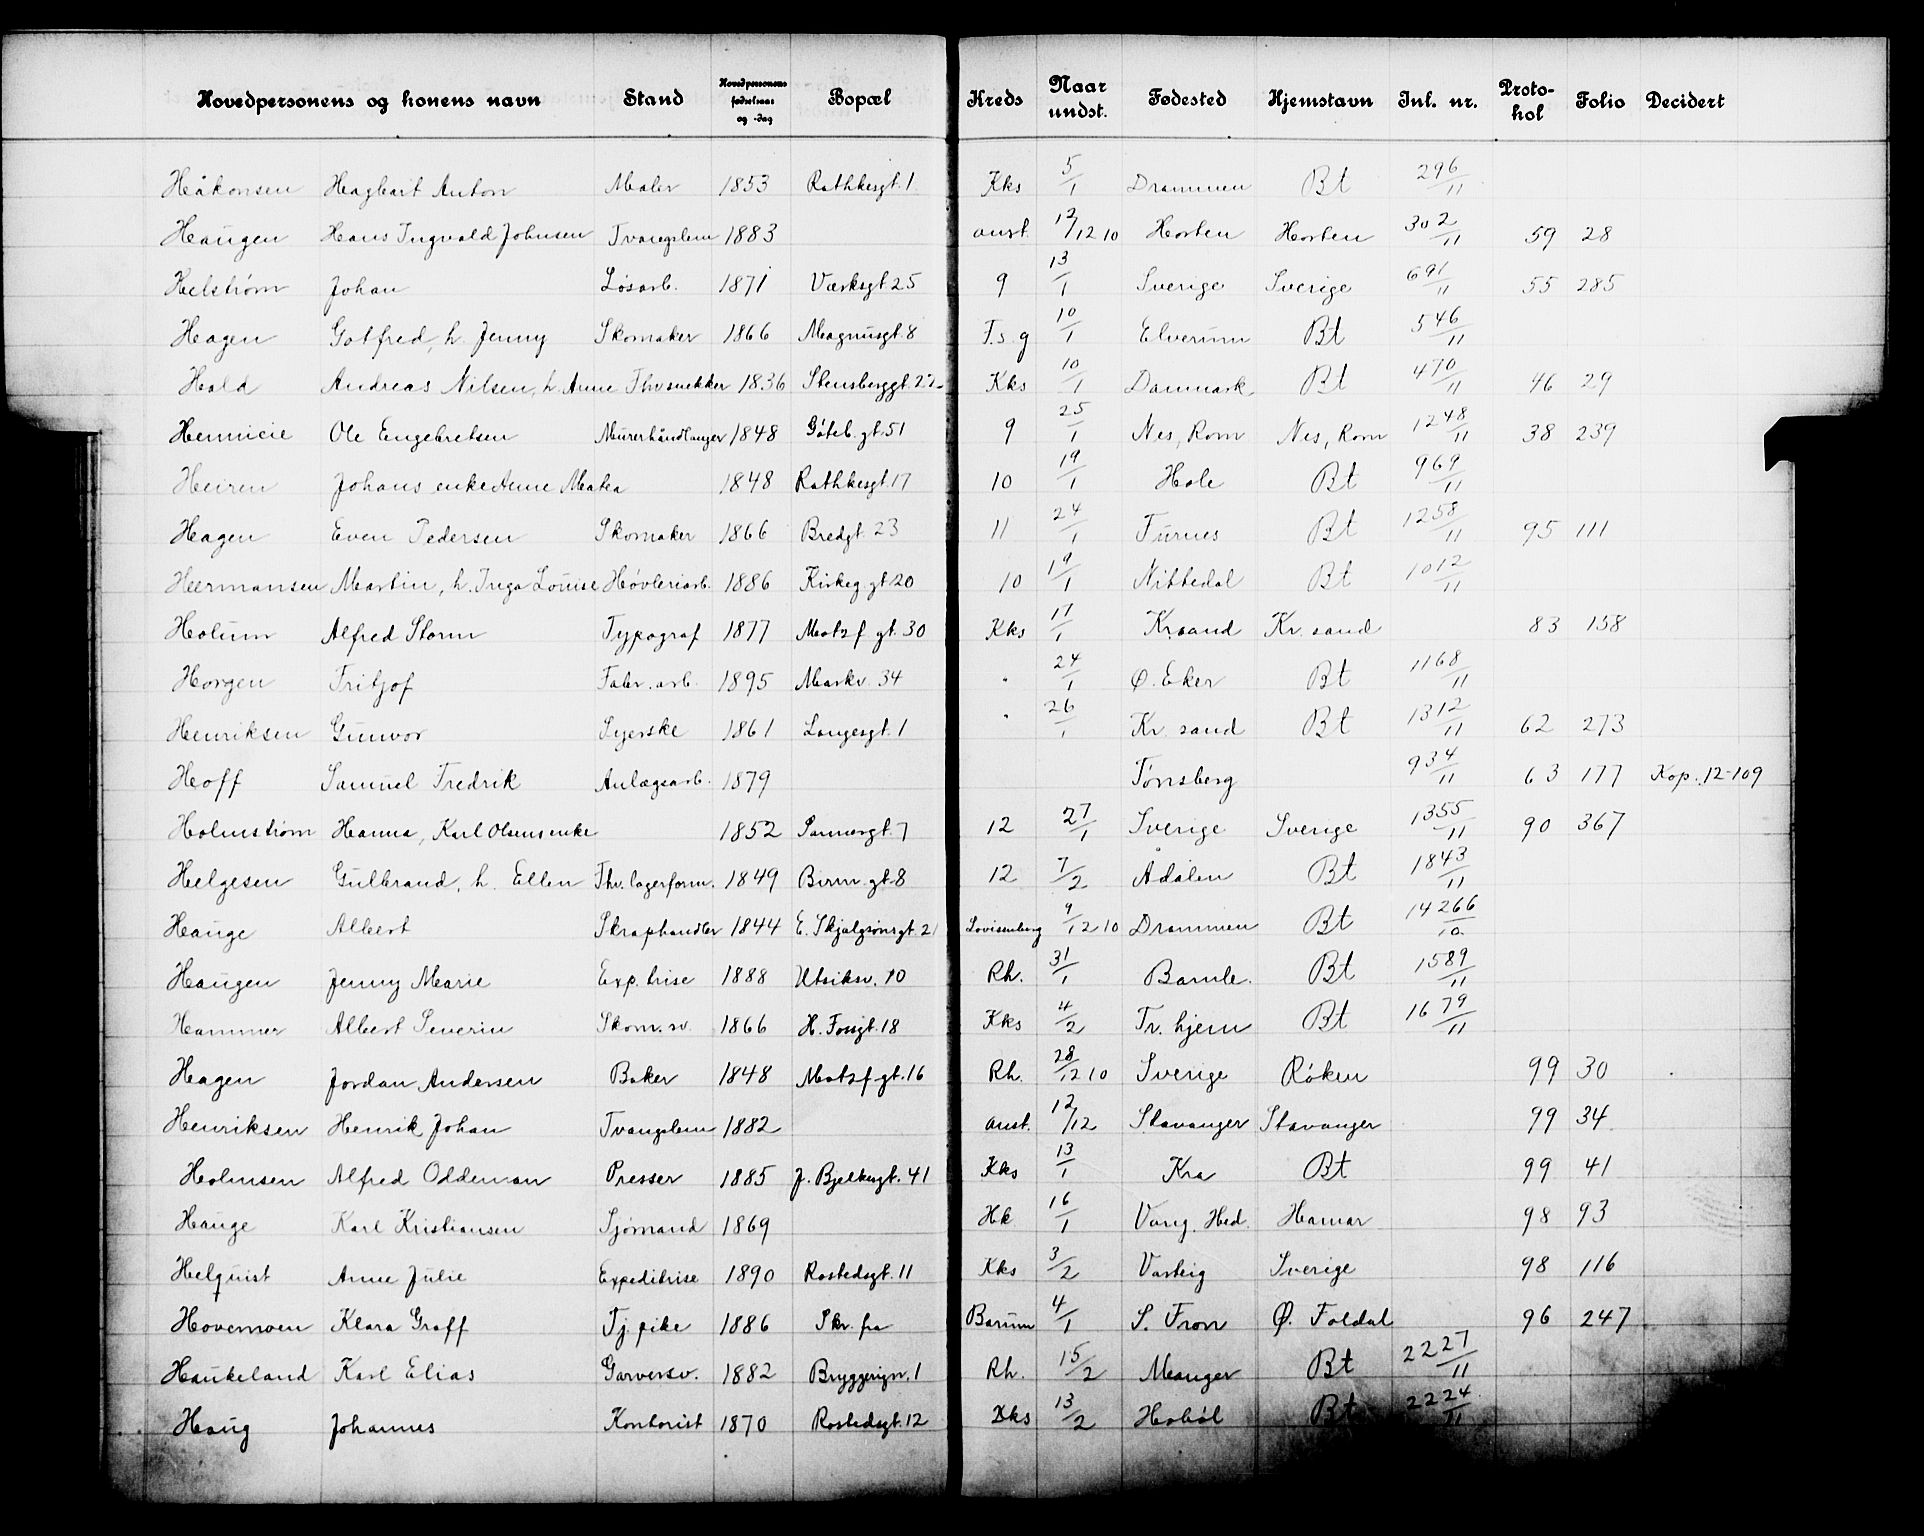 Hovedpersonens og konens navn Stand Hovedpersonens fødselsaar og -dag Bopæl Kreds Naar undst. Fødested Hjemstavn Inl. nr. Protokol Folio Decidert
Håkonsen Hagbart Anton Maler 1853 Rathkesgt. 1 Kks 5/1 Drammen Bt 296/11
Haugen Hans Ingvald Johnsen Tvangslem 1883 anst. 12/12 10 Horten Horten 302/11 59 28
Helstrøm Johan Løsarb. 1871 Værksgt 25 9 13/1 Sverige Sverige 691/11 55 285
Hagen Gotfred, h. Jenny Skomaker 1866 Magnusgt. 8 F.s. g 10/1 Elverum Bt 546/11
Hald Andreas Nilsen, h. Anne Thv snekker 1836 Stensberggt. 22 Kks 10/1 Danmark Bt 470/11 46 29
Hennicie Ole Engebretsen Murerhåndlanger 1848 Gøteb. gt. 51 9 25/1 Nes, Rom Nes, Rom 1248/11 38 239
Heiren Johans enke Anne Maka 1848 Rathkesgt. 17 10 19/1 Hole Bt 969/11
Hagen Even Pedersen Skomaker 1866 Bredgt. 23 11 24/1 Furnes Bt 1258/11 95 111
Hermansen Martin, h. Inga Louise Høvleriarb. 1886 Kirkeg. gt. 20 10 19/1 Nittedal Bt 1012/11
Holum Alfred Storm Typograf 1877 Motzf. gt. 30 Kks 17/1 Krsand Kr. sand 83 158
Horgen Fritjof Fabr. arb. 1895 Markv. 34 " 24/1 Ø. Eker Bt 1168/11
Henriksen Gunvor Syerske 1861 Langesgt. 1 " 26/1 Kr. sand Bt 1312/11 62 273
Hoff Samuel Fredrik Anlægsarb. 1879 Tønsberg 934/11 63 177 Kop. 12-109
Holmstrøm Hanna, Karl Olsens enke 1852 Sannergt. 7 12 27/1 Sverige Sverige 1355/11 90 367
Helgesen Gulbrand, h. Ellen Thv. lagerform. 1849 Birm. gt. 8 12 7/2 Ådalen Bt 1843/11
Hauge Albert Skraphandler 1844 E. Skjalgsønsgt. 21 Lovisenberg 9/12 10 Drammen Bt 14266/10
Haugen Jenny Marie Exp. trise 1888 Utsiksv. 10 Rh. 31/1 Bamle. Bt 1589/11
Hammer Albert Severin Skom. sv. 1866 H. Fossgt. 18 Kks 4/2 Tr. hjem Bt 1679/11
Hagen Jordan Andersen Baker 1848 Motzf. gt. 16 Rh. 28/12 10 Sverige Røken 99 30
Henriksen Henrik Johan Tvangslem 1882 anst. 12/12 Stavanger Stavanger 99 34
Holmsen Alfred Oddeman Presser 1885 J. Bjelkesgt. 41 Kks 13/1 Kra Bt 99 41
Hauge Karl Kristiansen Sjømand 1869 Hk 16/1 Vang, Hed. Hamar 98 93
Helquist Anne Julie Expeditrise 1890 Rostedsgt. 11 Kks 3/2 Varteig Sverige 98 116
Hovemoen Klara Graff Tj. pike 1886 Skr. fra Bærum 4/1 S. Fron Ø. Foldal 96 247
Haukeland Karl Elias Garversv. 1882 Bryggerign. 1 Rh. 15/2 Manger Bt 2227/11
Haug Johannes Kontorist 1870 Rostedsgt. 12 Kks 13/2 Hobøl Bt 2224/11